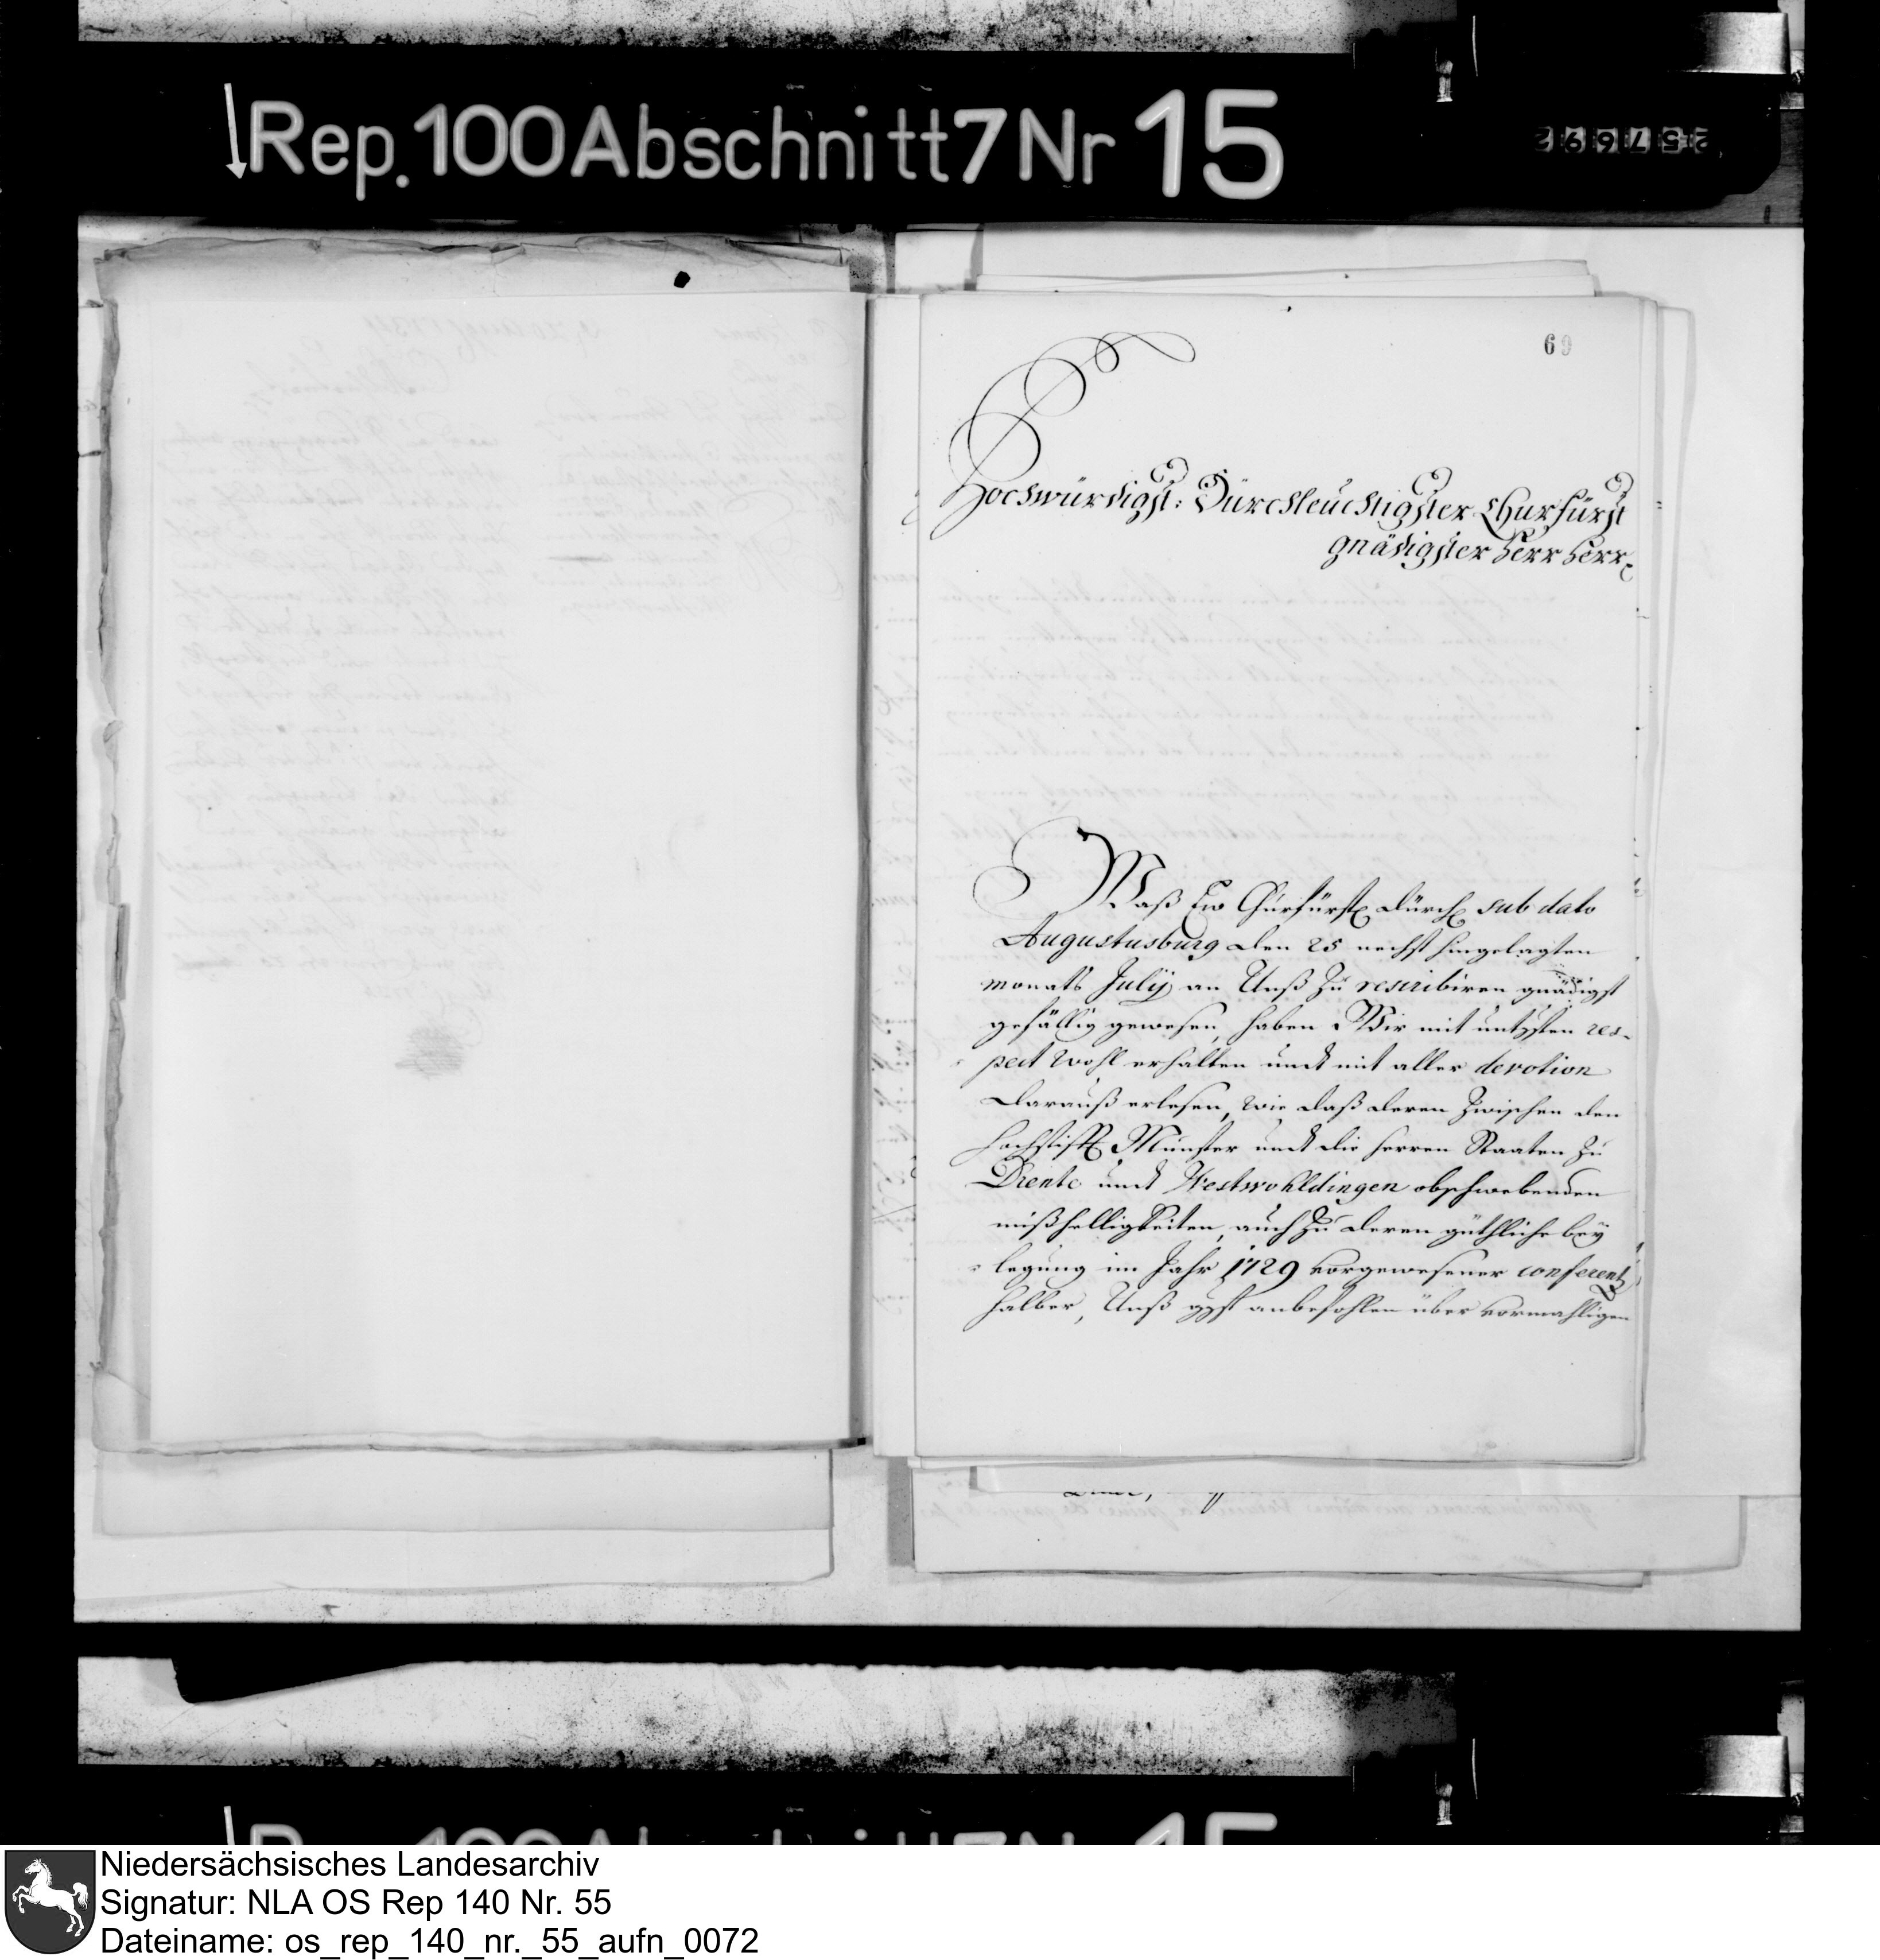 Rep. 100 Abschnitt 7 Nr 15
257692
69
Hochwürdigst: Dürchleüchtigster Churfürst
gnädigster Herr Herr
Waß Ew Chürfürstl Dürchl sub dato
Augustusburg den 25 nechst hingelagten
monats Julÿ an Unß zu rescribiren gnädigst
gefällig gewesen, haben Wir mit untgsten res-
pect wohl erhalten undt mit aller devotion
darauß erlesen, wie daß deren zwischen den
Hochstifft Münster undt die Herren Staaten zu
Drente undt Westwohldingen obschwebenden
mißhelligkeiten, auch zu deren güthliche beÿ
legung im Jahr 1729 vorgewesener conferentz
halber, Unß ggst anbefohlen über vormahligen
Niedersächsisches Landesarchiv
Signatur: NLA OS Rep 140 Nr. 55
Dateiname: os_rep_140_nr._55_aufn_0072